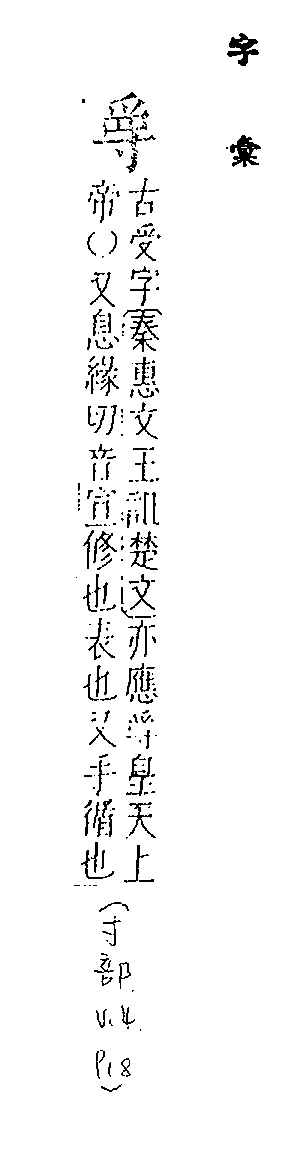 字彙
古受字(秦惠文王詛楚文)亦應皇天上
帝()又息緣切音宣修也表也又手循也
(寸部 V.4. P18)